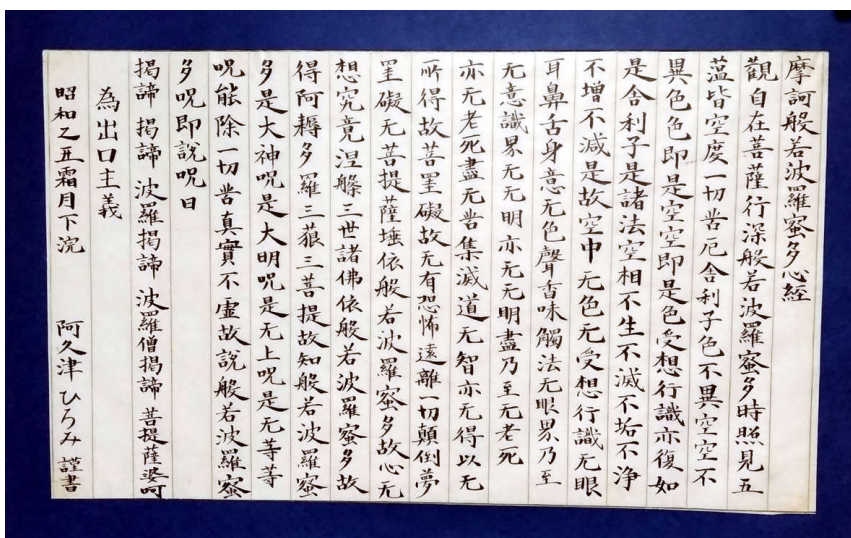 摩訶般若波羅蜜多心經
觀自在菩薩行深般若波羅蜜多時照見五
薀皆空度一切苦厄舍利子色不異空空不
異色色即是空空即是色受想行識亦復如
是舍利子是諸法空相不生不滅不垢不浄
不增不減是故空中无色无受想行識无眼
耳鼻舌身意无色聲香味觸法无眼界乃至
无意識界无无明亦无无明盡乃至无老死
亦无老死盡无苦集滅道无智亦无得以无
所得故菩罣礙故无有恐怖遠離一切顛倒夢
罣礙无菩提薩埵依般若波羅蜜多故心无
想究竟涅槃三世諸佛依般若波羅蜜多故
得阿耨多羅三藐三菩提故知般若波羅蜜
多是大神呪是大明呪是无上呪是无等等
呪能除一切苦真實不虛故說般若波羅蜜
多呪即說呪曰
揭諦 揭諦 波羅揭諦 波羅僧揭諦 菩提薩婆呵
為出口主義
昭和乙丑霜月下浣 阿久津ひろみ 謹書